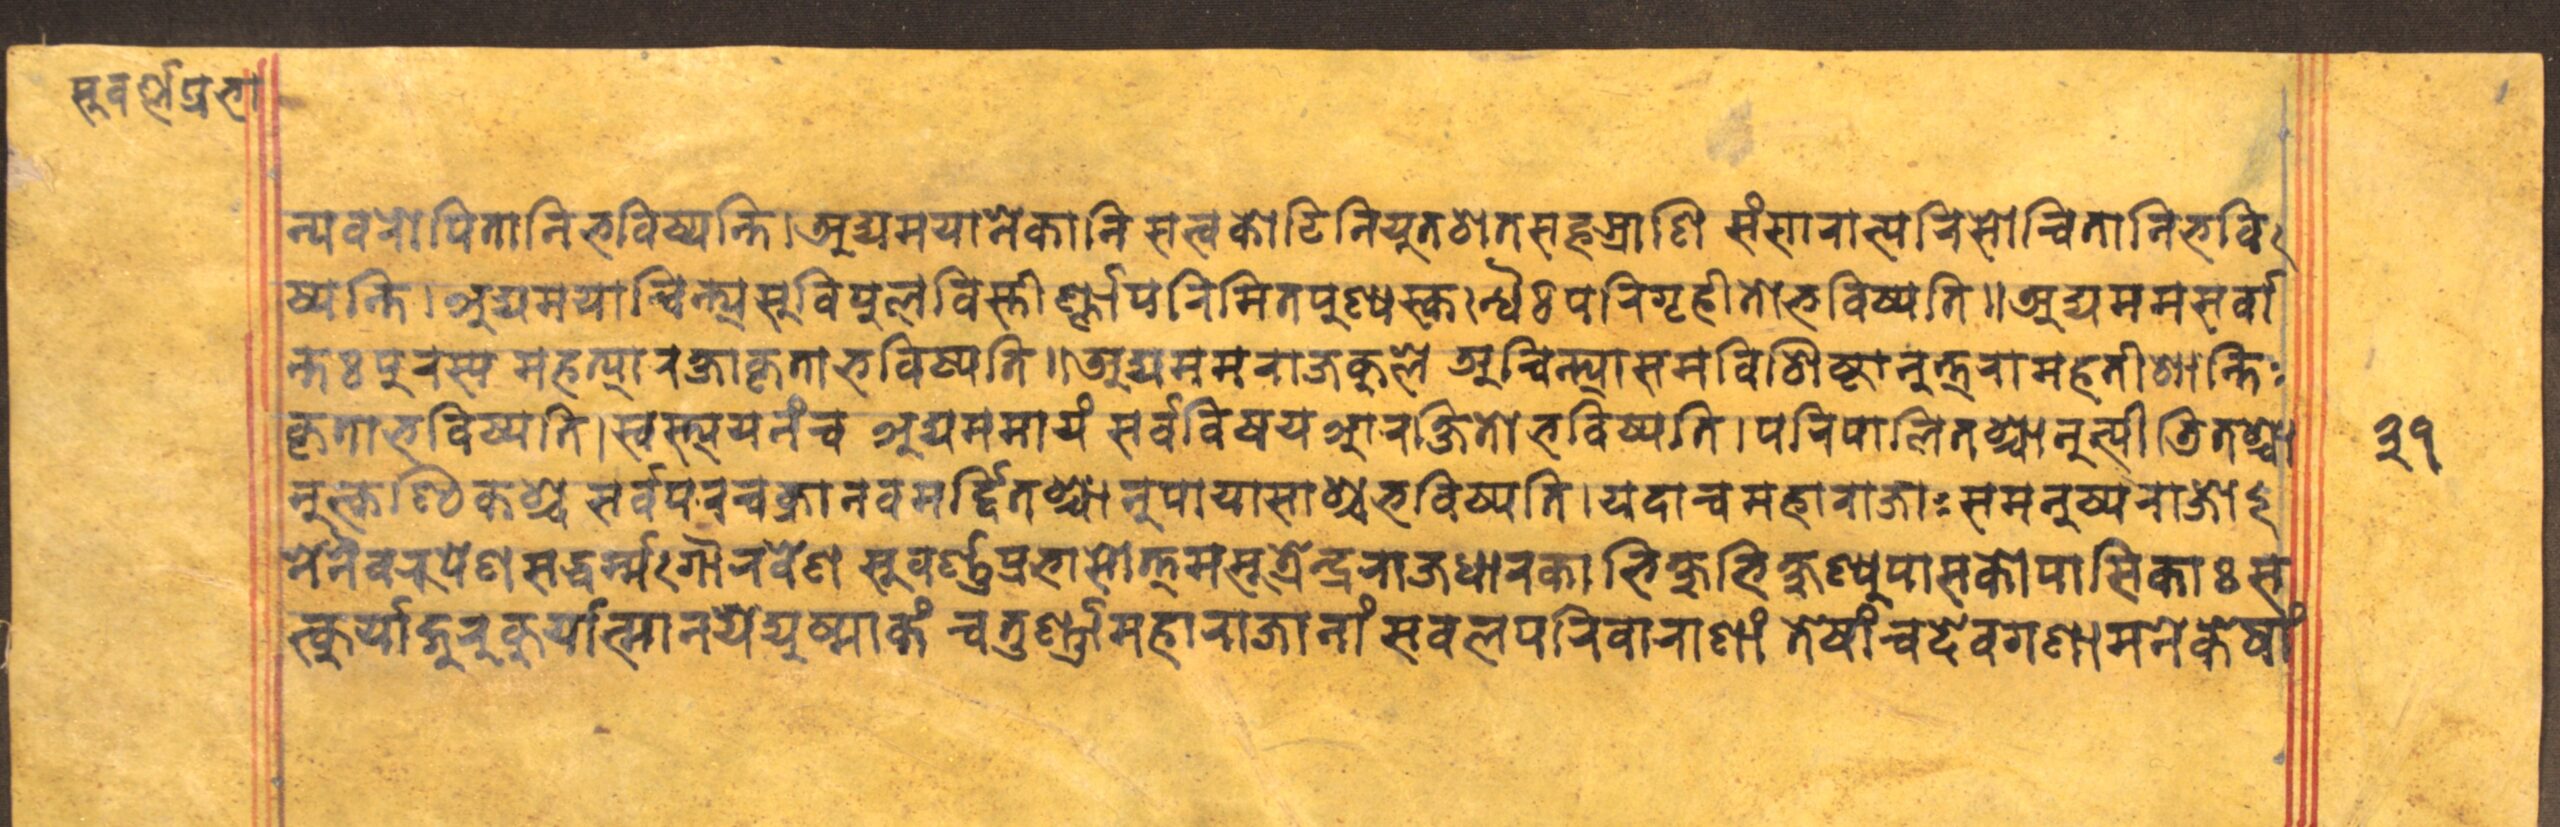 सुवर्ण्णप्रभा
न्यवरोपितानि भविष्यन्ति। अद्यमयानेकानि सत्वकोटिनियुतशतसहस्राणि संसारात्परिमोचितानि भवि
ष्यन्ति। अद्यमयाचिन्त्यसुविपुलविस्तीर्ण्णापरिमितपुण्यस्कन्धैः परिगृहीतो भविष्यति॥ अद्यममसर्वा
न्तःपुरस्य महत्यारक्षाकृता भविष्यति॥ अद्यममराजकुले अचिन्त्यासमविशिष्टानुत्तरामहतीशान्तिः
कृताभविष्यति। स्वस्त्ययनंच अद्यममायं सर्वविषयआरक्षितो भविष्यति। परिपालितश्चानुत्पीडितश्चा
नुत्कण्ठिकश्च सर्वपरचक्रानवमर्द्दितश्चानुपायासाश्च भविष्यति। यदाचमहाराजाः समनुष्यराजो
नेनैवरुपेणसद्धर्म्मगौरवेण सुवर्ण्णप्रभासोत्तमसूत्रेन्द्रराजधारकाभिक्षुभिक्षुण्युपासकोपासिकाः स
त्कुर्याद्गुरुकुर्यात्मानयेद्युष्माकं चतुर्ण्णां महाराजानां सबलपरिवाराणां तेषांचदेवगणामनेकेषां
३१